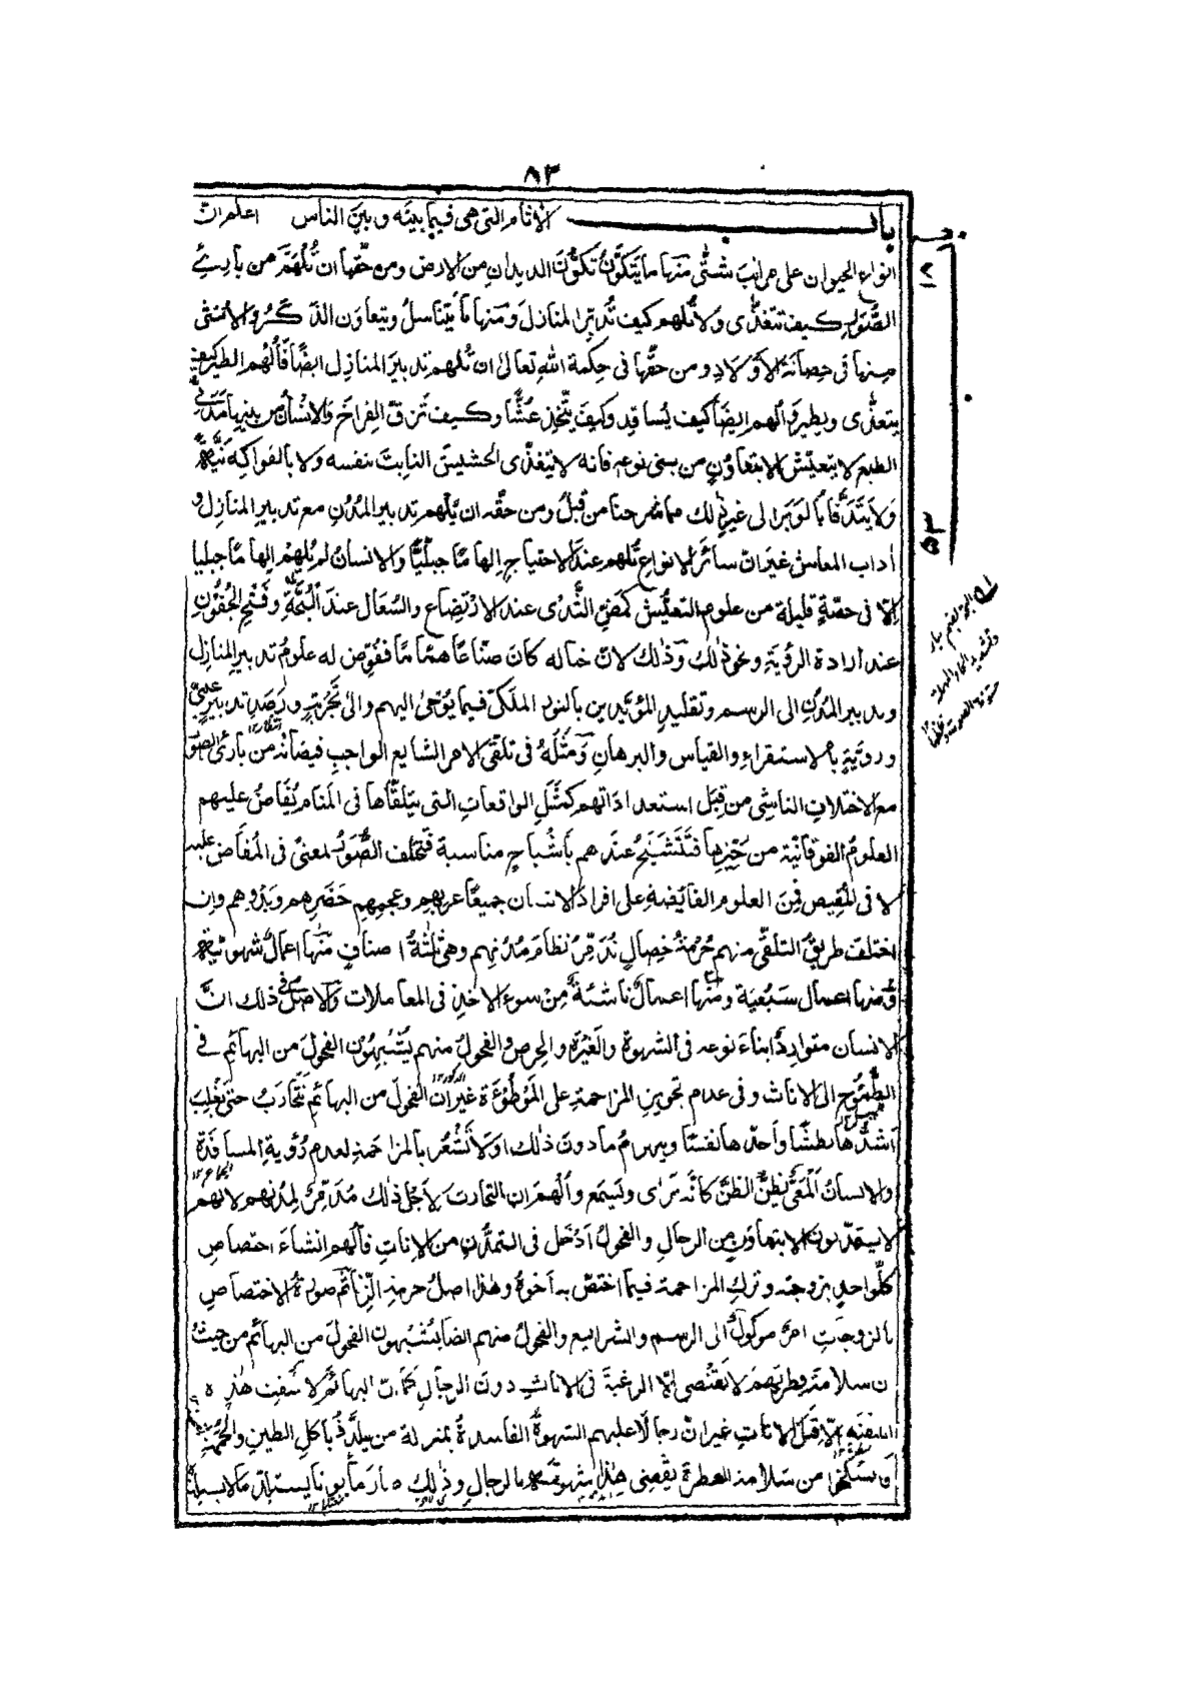 ٨٣
باب الآثام التى هى فيما بينه وبين الناس اعلم ان
انواع الحيوان على مراتب شتّى منها ما يتكوّن تكوّن الديدان من الارض ومن حقّها ان تُلهَم من بارئ
الصُّوَر كيف تتغذّى ولا تُلهم كيف تُدبّر المنازل ومنها ما يتناسل ويتعاون الذكر والانثى
منها فى حِضانة الاولاد ومن حقّها فى حكمة الله تعالى ان تُلهم تدبير المنازل ايضًا فأُلهم الطير كيف
يتغذّى ويطير وأُلهم ايضًا كيف يسافد وكيف يتّخذ عُشًّا وكيف تَزقّ الفِراخ والانسان من بينها مدنى
الطبع لا يتعيّش الا بتعاون من بنى نوعه فانه لا يتغذّى الحشيش النابت بنفسه ولا بالفواكه نيّة
ولا يتدفّأ بالوبر الى غير ذلك مما شرحنا من قبل ومن حقّه ان يُلهم تدبير المُدُن مع تدبير المنازل و
آداب المعاش غير ان سائر الانواع تُلهم عند الاحتياج إلهامًا جبلّيًّا والانسان لم يُلهم إلهامًا جبليا
إلّا فى حصّة قليلة من علوم التعيُّش كمصّ الثدى عند الارتضاع والسُّعال عند البُحّة وفتح الجفون
عند ارادة الرؤية ونحو ذلك وذلك لان خياله كان صنّاعًا همّامًا ففوّض له علوم تدبير المنازل
وتدبير المدن الى الرسم وتقليد المؤيّدين بالنور الملكى فيما يُوحى اليهم والى تجربة ورصد تدبير غيبى
وروية بالاستقراء والقياس والبرهان ومَثَله فى تلقّى الامر الشايع الواجب فيضانه من بارئ الصور
مع الاختلاف الناشى من قِبَل استعداداتهم كمثل الواقعات التى يتلقّاها فى المنام يُفاض عليهم
العلوم الفوقانيّة من حَيّزها فتتشبّح عندهم بأشباح مناسبة فتختلف الصُّوَر لمعنى فى المُفاض عليه
لا فى المُفيض فمن العلوم الفائضة على افراد الانسان جميعًا عربهم وعجمهم حضرهم وبدوهم وان
اختلف طريق التلقّى منهم حُرمة خصال تُدمّر نظام مُدُنهم وهى ثلثة اصناف منها اعمال شهوية
ومنها اعمال سَبُعية ومنها اعمال ناشئة من سوء الاخذ فى المعاملات والاصل فى ذلك انّ
الانسان متوارد ابناء نوعه فى الشهوة والغيرة والحرص والفحول منهم يُشبهون الفحول من البهائم فى
الطُّموح الى الاناث وفى عدم تجويز المزاحمة على الموطوءة غير ان الفحول من البهائم تتحارب حتى يغلب
اشدُّها بطشًا وأحدّها نفسًا وينهزم ما دون ذلك او لا تَشعُر بالمزاحمة لعدم رؤية المسافدة
والانسان ألمعىّ يظنّ الظنّ كأنّه يرى ويسمع وأُلهم ان التحارب لأجل ذلك مُدمّر لمُدنهم لانهم
لا يتمدّنون الا بتعاون من الرجال والفحول أدخل فى التمدّن من الاناث فأُلهم انشاء اختصاص
كلّ واحد بزوجته وترك المزاحمة فيما اختصّ به أخوه وهذا اصل حرمة الزنا ثم صورة الاختصاص
بالزوجات امر موكول الى الرسم والشرايع والفحول منهم ايضا يُشبهون الفحول من البهائم من حيث
ان سلامة فطرتهم لا تقتضى إلّا الرغبة فى الاناث دون الرجال كما ان البهائم لا تلتفت هذه
اللفتة إلّا قِبَل الاناث غير انّ رجالًا غلبهم الشهوة الفاسدة بمنزلة من يتلذّذ بأكل الطين والحُممة
فانسلخوا من سلامة الفطرة يقضى هذا شهوته بالرجال وذلك صار مأبونا يستلذّ ما لا يستلذّه
٥٣